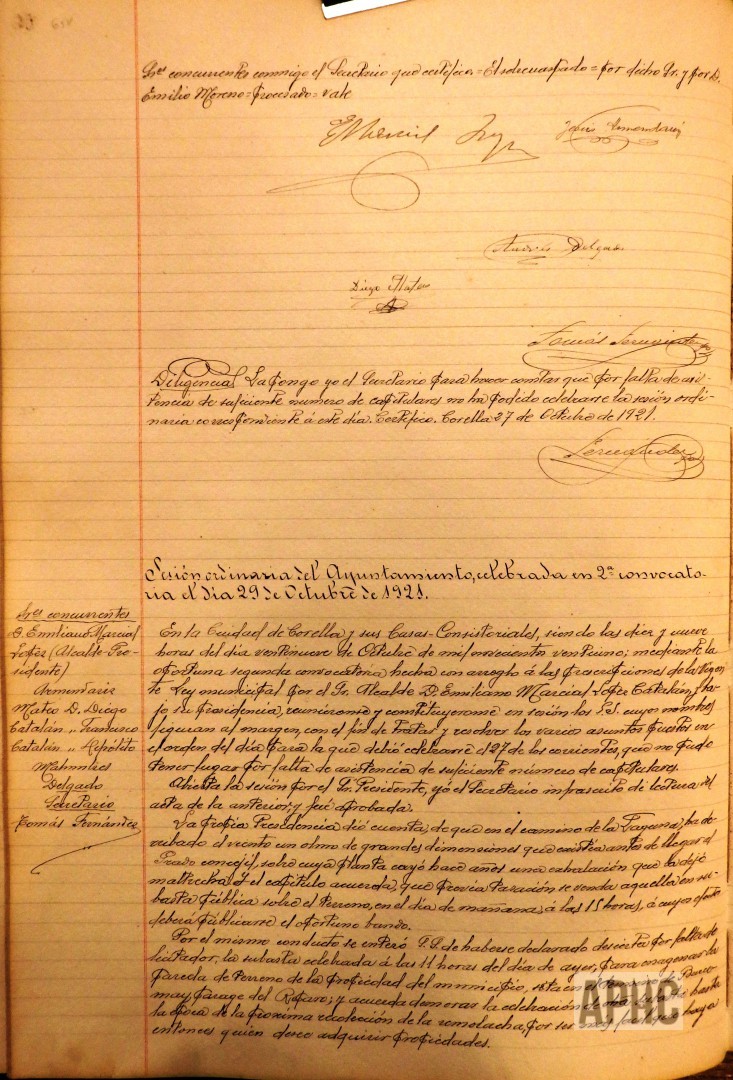 Sres concurrentes conmigo el Secretario que certifico.=El sobreraspado=por dicho Sr. y por D.
Emilio Moreno=Procesado=vale
EMarcial
Diego Mateo
Andrés Delgado
Tomás Fernández
Diligencia/ La pongo yo el Secretario para hacer constar que por falta de asis-
tencia de suficiente numero de capitulares no ha podido celebrarse la sesión ordi-
naria correspondiente á este día. Certifico. Corella 27 de Octubre de 1921.
Fernández
Sesión ordinaria del Ayuntamiento, celebrada en 2ª convocato-
ria el día 29 de Octubre de 1921.
Sres concurrentes
D. Emiliano Marcial
López (Alcalde-Pre-
sidente)
Armendáriz
Mateo D. Diego
Catalán " Francisco
Catalán " Hipólito
Delgado
Secretario
Tomás Fernández
En la Ciudad de Corella y sus Casas-Consistoriales, siendo las diez y nueve
horas del día veintinueve de Octubre de mil novecientos veintiuno; mediante la
oportuna segunda convocatoria hecha con arreglo á las prescripciones de la vigen-
te Ley municipal por el Sr. Alcalde D. Emiliano Marcial López Catalán, y ba-
jo su presidencia, reuniéronse y constituyeronse en sesión los S.S. cuyos nombres
figuran al margen, con el fin de tratar y resolver los varios asuntos puestos en
el orden del día para la que debió celebrarse el 27 de los corrientes, que no pudo
tener lugar por falta de asistencia de suficiente número de capitulares.
Abierta la sesión por el Sr. Presidente, yo el Secretario infrascrito dí lectura del
acta de la anterior, y fué aprobada.
La propia Presidencia dió cuenta, de que en el camino de la Laguna, ha de-
rribado el viento un olmo de grandes dimensiones que existía antes de llegar al
Prado concejil, sobre cuya planta cayó hace años una exhalación que la dejó
maltrecha; y el capítulo acuerda, que previa tasación se venda aquella en su-
basta pública sobre el terreno, en el día de mañana, á las 15 horas, á cuyo efecto
deberá publicarse el oportuno bando.
Por el mismo conducto se enteró S.S. de haberse declarado desierta por falta de
licitador, la subasta celebrada á las 11 horas del día de ayer, para enagenar la
parcela de terreno de la propiedad del municipio, sita en
y acuerda demorar la celebración de hasta
la época de la próxima recolección de la remolacha, por ser haya
entonces quien desee adquirir propiedades.
APHC